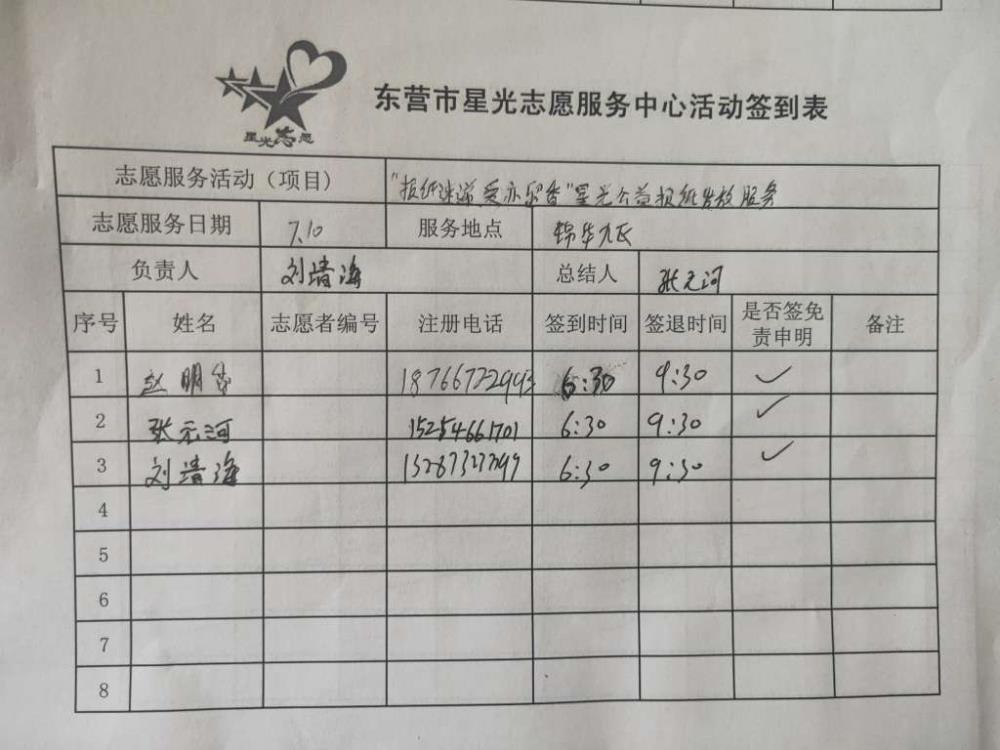 星光志愿
东营市星光志愿服务中心活动签到表
志愿服务活动（项目） "报纸速递 爱亦留香"星光公益报纸发放服务
志愿服务日期 7.10 服务地点 锦华九区
负责人 刘清海 总结人 张元河
序号 姓名 志愿者编号 注册电话 签到时间 签退时间 是否签免责申明 备注
1 赵明 6:30 9:30 ✓
2 张元河 15254661701 6:30 9:30 ✓
3 刘清海 6:30 9:30 ✓
4
5
6
7
8